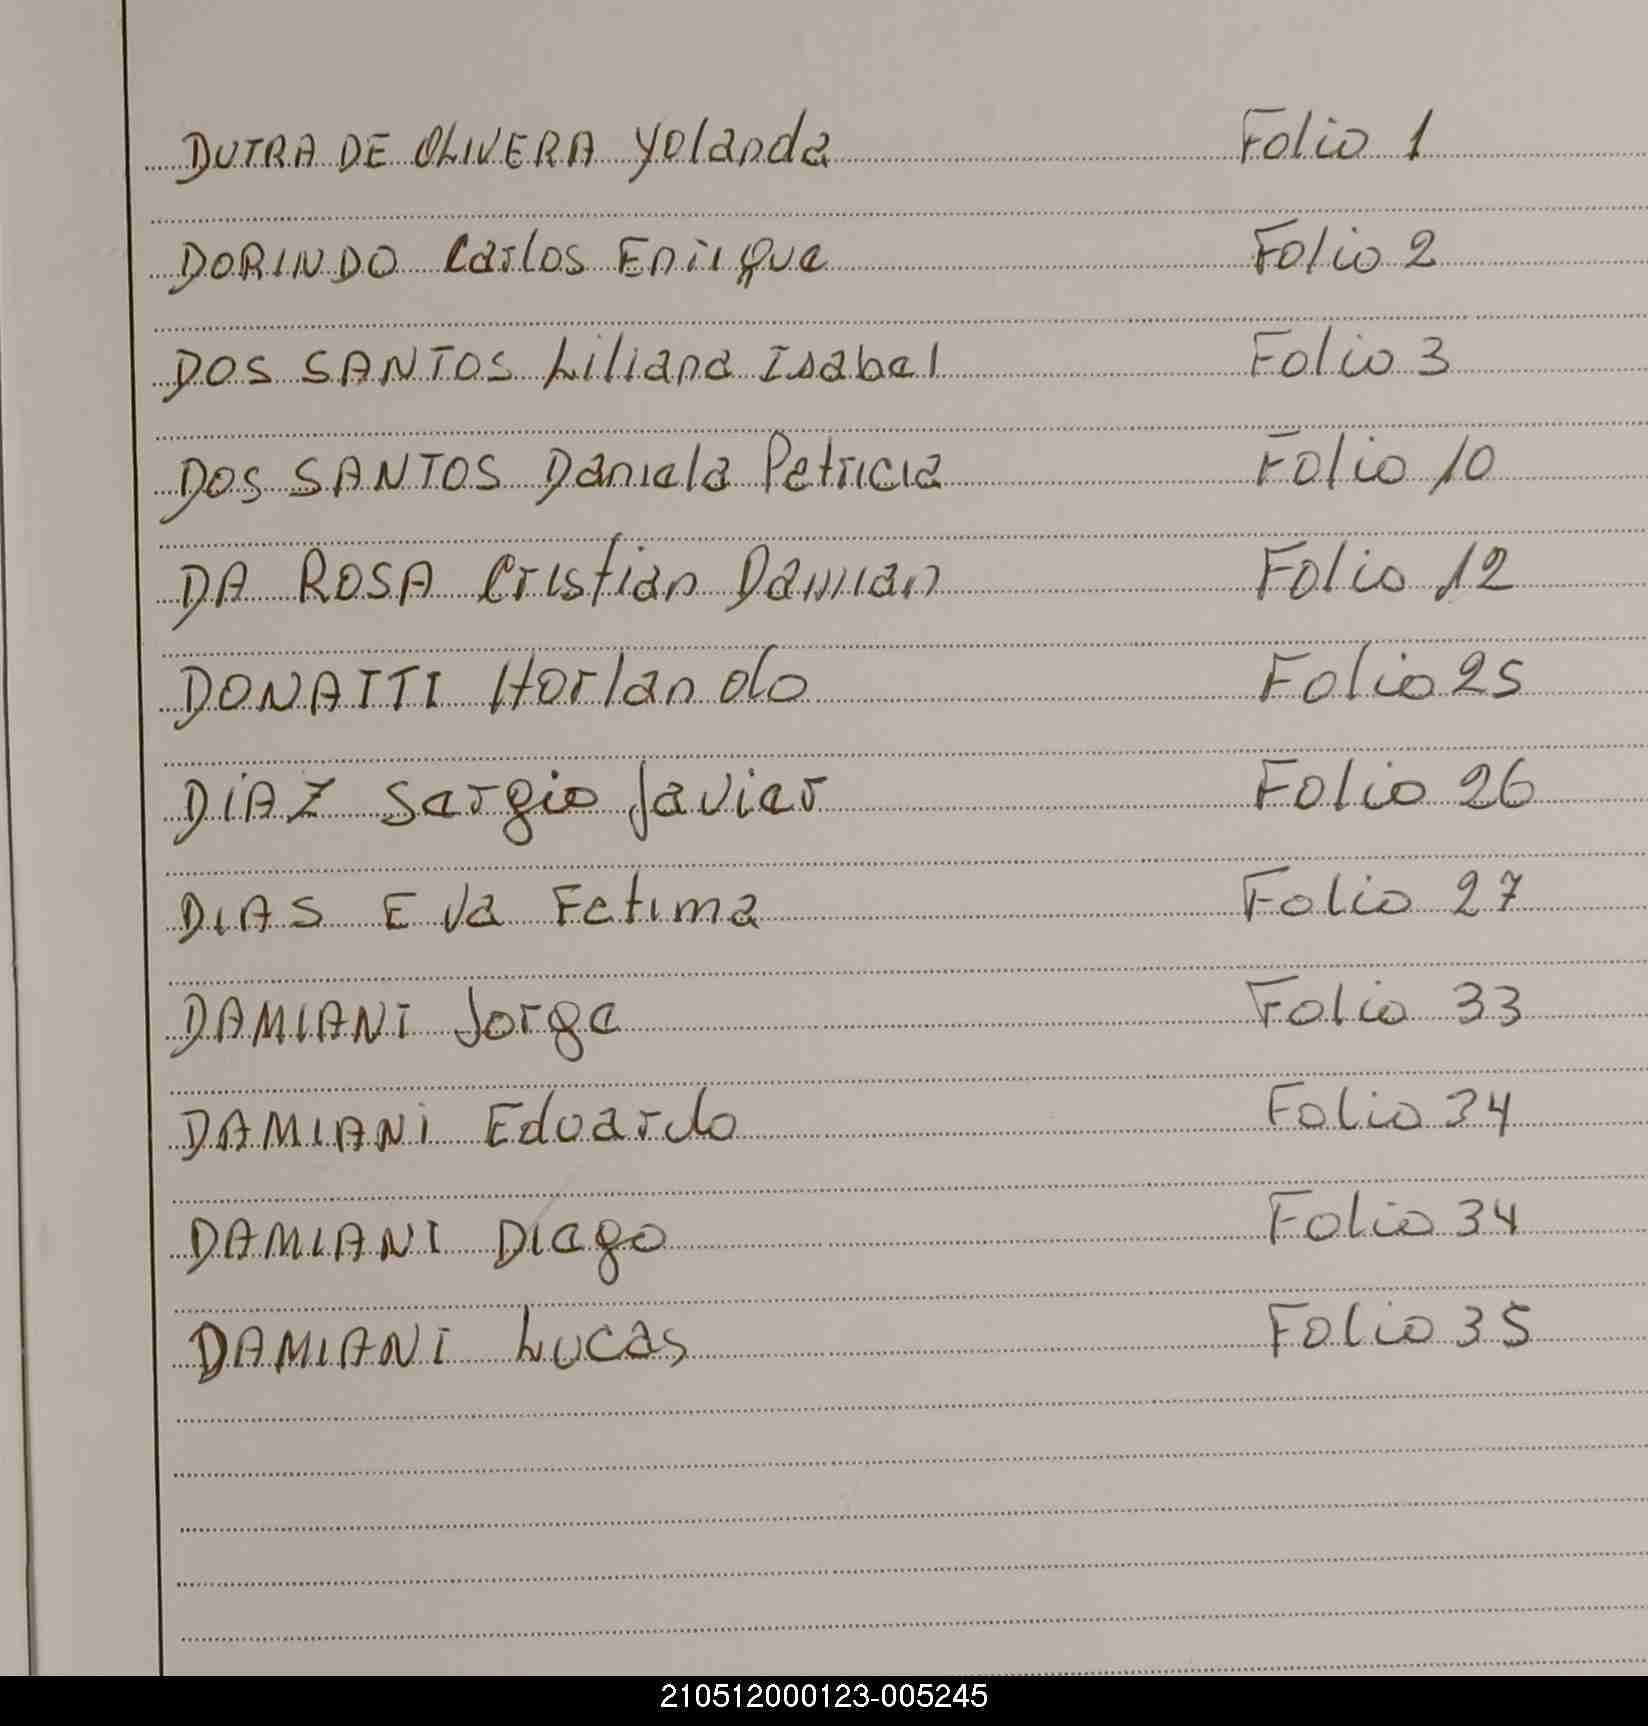 DUTRA DE OLIVERA Yolanda Folio 1
DORINDO Carlos Enrique Folio 2
DOS SANTOS Liliana Isabel Folio 3
DOS SANTOS Daniela Patricia Folio 10
DA ROSA Cristian Damian Folio 12
DONATTI Horlando Folio 25
DIAZ Sergio Javier Folio 26
DIAS Eva Fatima Folio 27
DAMIANI Jorge Folio 33
DAMIANI Eduardo Folio 34
DAMIANI Diego Folio 34
DAMIANI Lucas Folio 35
210512000123-005245